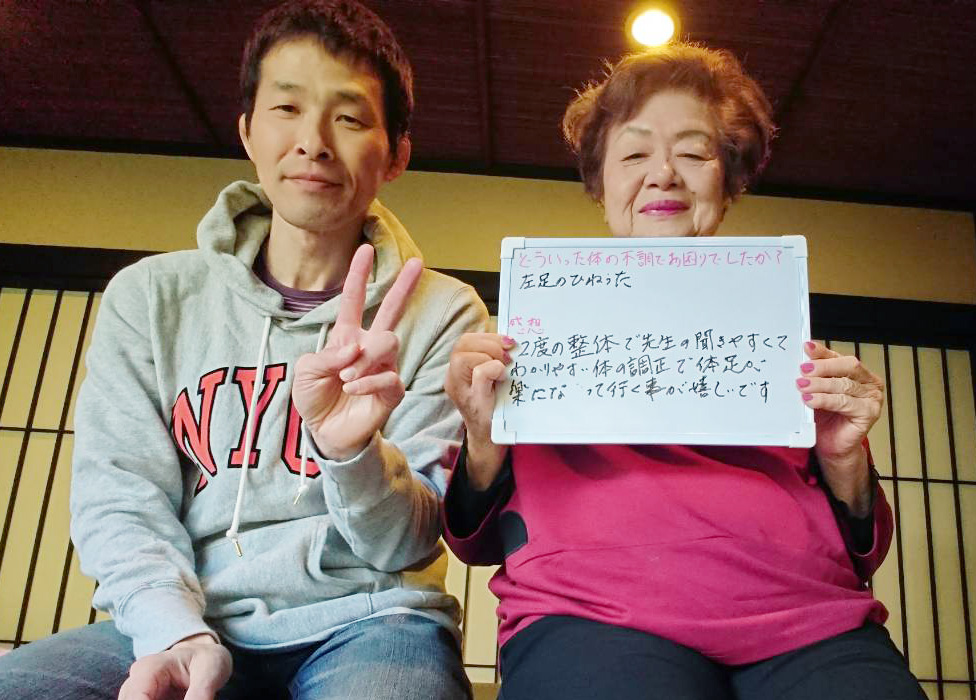 NYC
どういった体の不調でお困りでしたか?
左足のひねった
感想
2度の整体で先生の聞きやすくて
わかりやすい体の調正で体足が
楽にな って行く事が嬉しいです